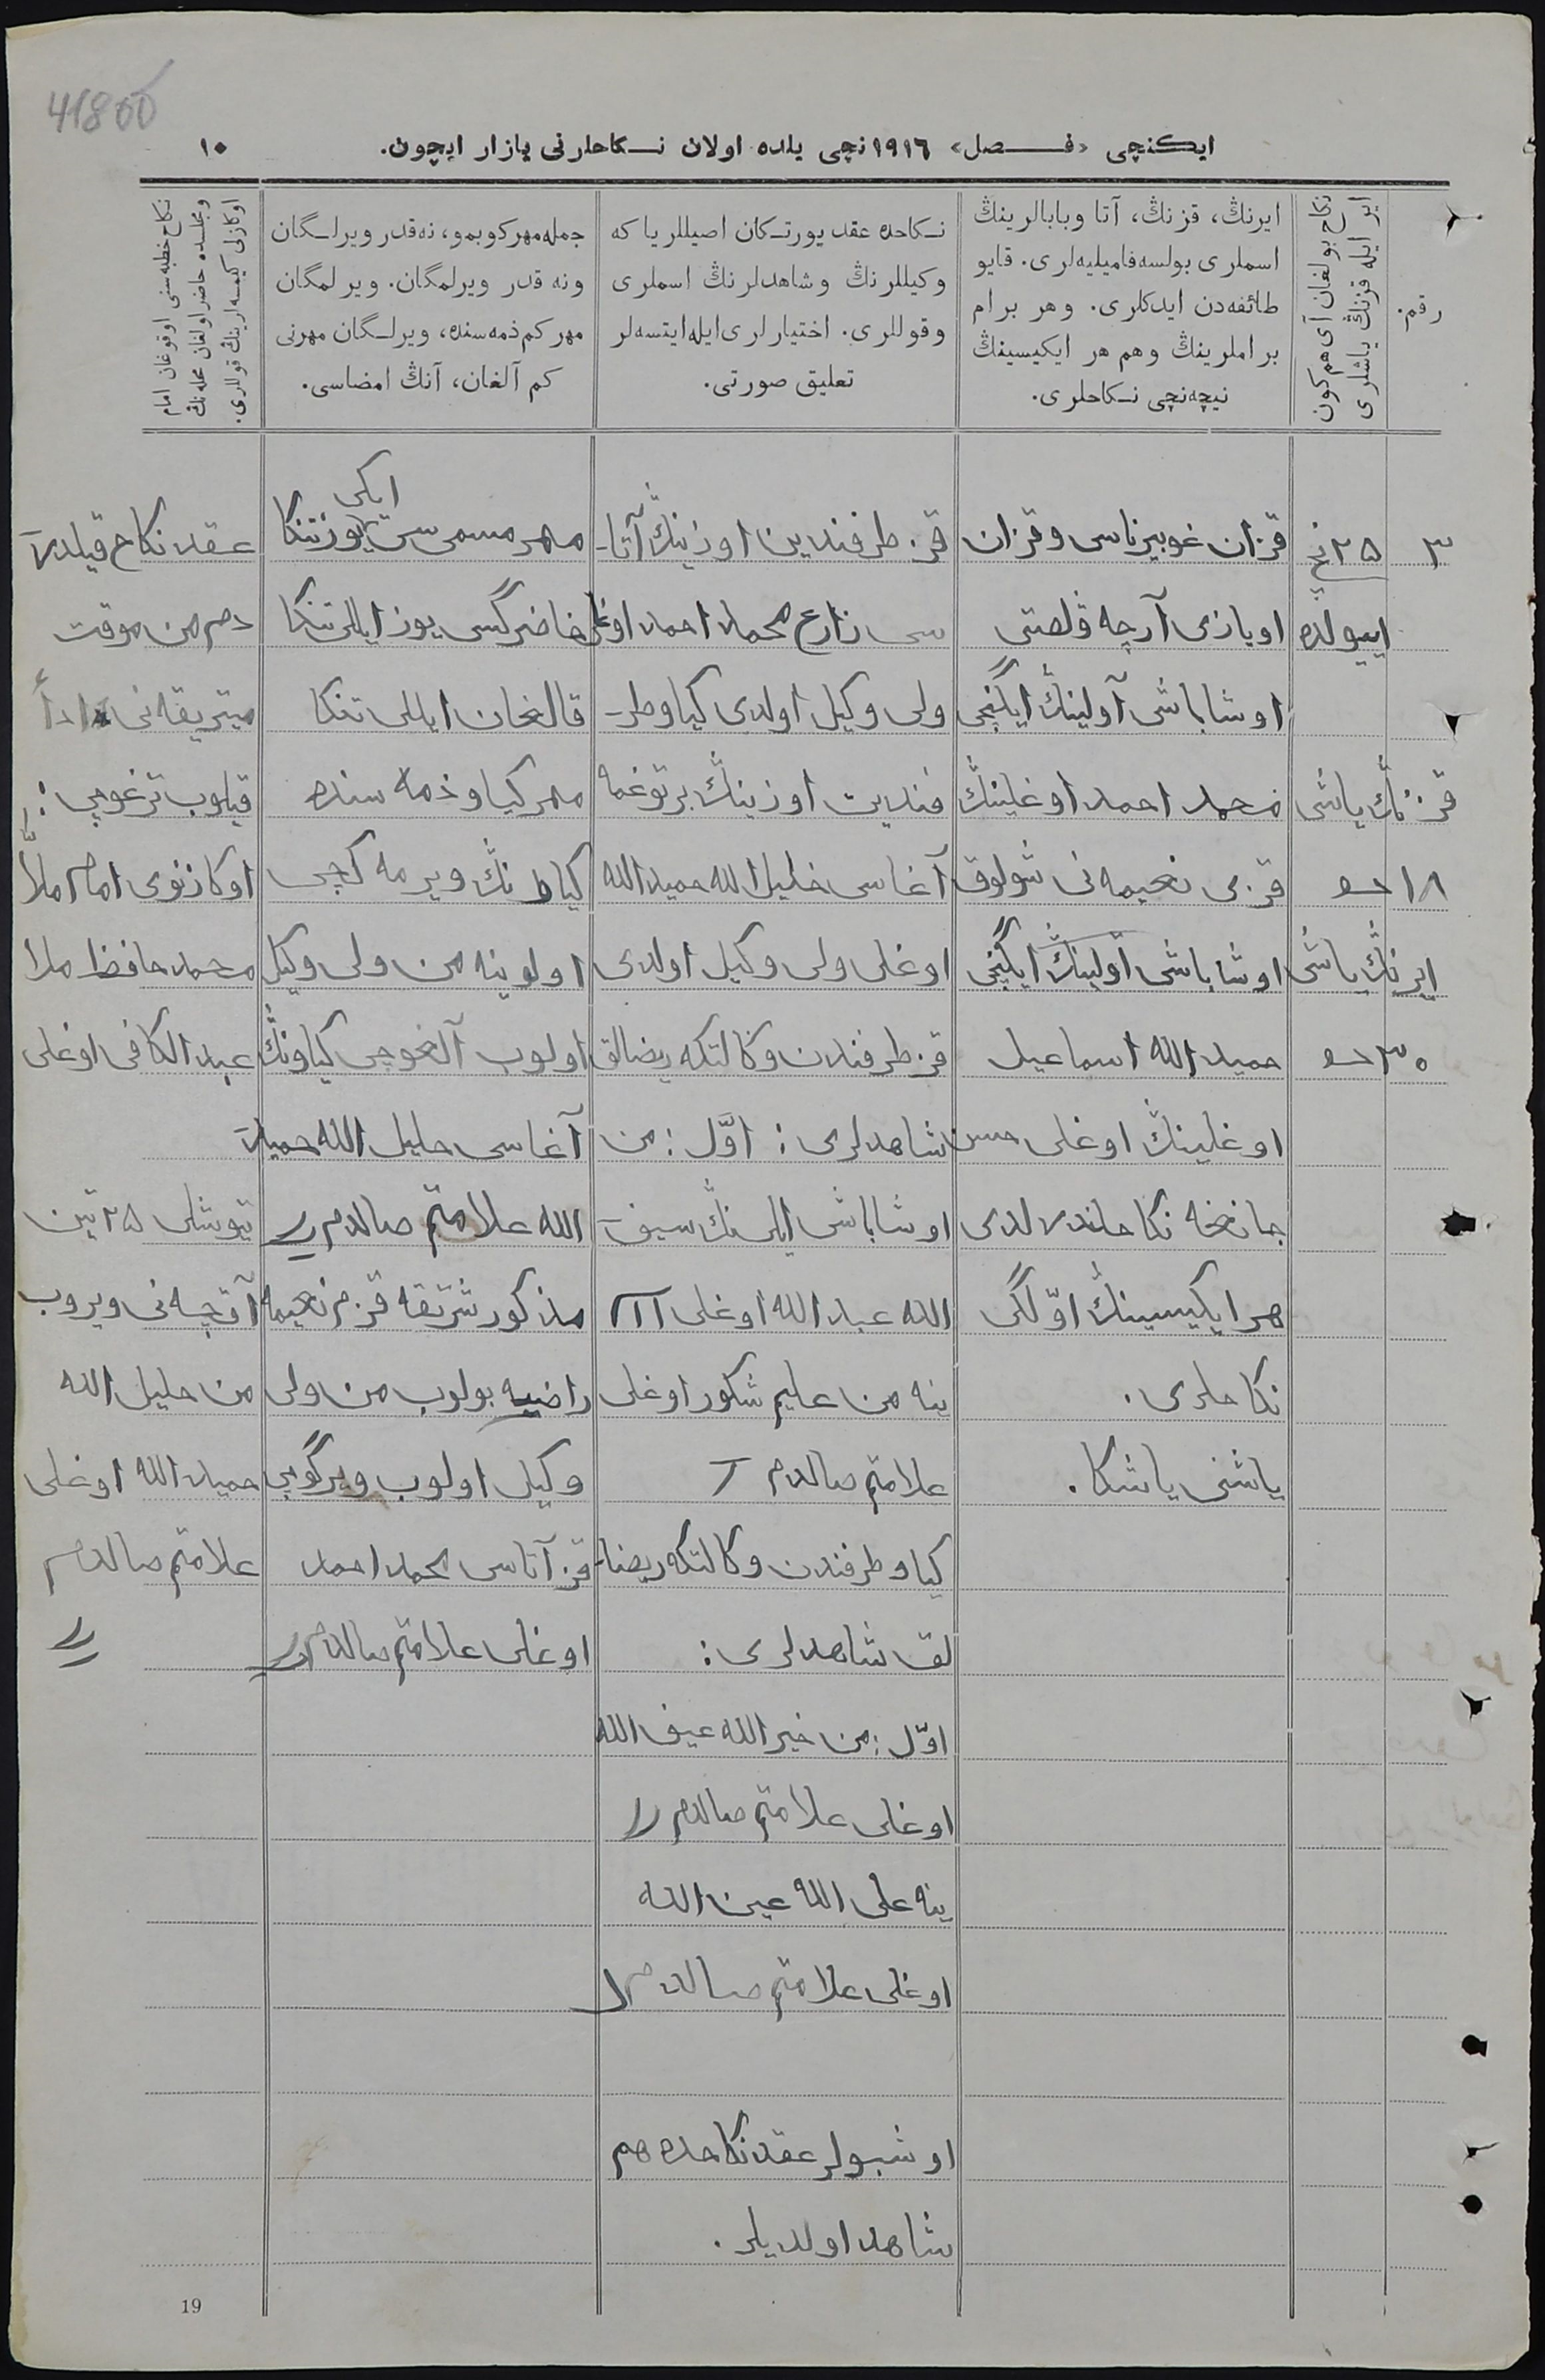 41800
ایکنچی «فصل» ١٩١٦نچی یلده اولان نکاحلرنی یازار ایچون.
١٠
رقم.
ایر ایله قزنڭ یاشلری
نکاح بولغان آی هم کون
ایرنڭ، قزنڭ، آتا وبابالرینڭ
اسملری بولسه فامیلیه‌لری. قایو
طائفه‌دن ایدکلری. وهر برام
براملرینڭ وهم هر ایکیسینڭ
نیچه‌نچی نکاحلری.
نکاحده عقد یورتکان اصیللر یا که
وکیللرنڭ وشاهدلرنڭ اسملری
وقوللری. اختیارلری ایله ایتسه‌لر
تعلیق صورتی.
جمله مهر کوبمو، نه‌قدر ویرلگان
ونه قدر ویرلمگان. ویرلمگان
مهر کم ذمه‌سنده، ویرلگان مهرنی
کم آلغان، آنڭ امضاسی.
اوکازلی کیمسه‌لرینڭ قوللاری.
ومجلسده حاضر اولغان محله‌نڭ
نکاح خطبه‌سنی اوقوغان امام
٣
٢٥ نچی
اییولده
قزنڭ یاشی
١٨ ده
ایرنڭ یاشی
٣٠ ده
قزان غوبیرناسی وقزان
اویازی آرچه ڤلصتی
اوشاباشی آولینڭ ایکنچی
محمد احمد اوغلینڭ
قزی نعیمه‌نی شولوق
اوشاباشی آولینڭ ایکنچی
حمیدالله اسماعیل
اوغلینڭ اوغلی حسن
جانغه نکاحلندرلدی
هر ایکیسینڭ اوّلگی
نکاحلری.
یاشنی یاشکا.
قز طرفندین اوزینڭ آتا-
سی زارع محمد احمد اوغلی
ولی وکیل اولدی کیاو طر-
فندین اوزینڭ برتوغمه
آغاسی خلیل الله حمیدالله
اوغلی ولی وکیل اولدی
قز طرفندن وکالتکه رضالق
شاهدلری: اوّل: من
اوشاباشی ایلی نڭ سیف
الله عبدالله اوغلی
ینه من علیم شکور اوغلی
علامتم صالدم
کیاو طرفندن وکالتکه رضا-
لق شاهدلری:
اوّل: من خیرالله عیف الله
اوغلی علامتم صالدم
ینه علی الله عین الله
اوغلی علامتم صالدم
اوشبولر عقد نکاحده هم
شاهد اولدیلر.
ایکی
مهر مسمی سی یوز تنکا
حاضرگسی یوز ایللی تنکا
قالغان ایللی تنکا
مهر کیاو ذمه سنده
کیاونڭ ویرمه کچی
اولوینه من ولی وکیل
اولوب آلغوچی کیاونڭ
آغاسی خلیل الله حمید
الله علامتم صالدم
مذکور شرتقه قزم نعیمه
راضیه بولوب من ولی
وکیل اولوب ویرگوچی
قز آتاسی محمد احمد
اوغلی علامتم صالدم
عقد نکاح قیلدم
دم من موقت
میتریقه‌نی ادأ
قیلوب ترغوچی:
اوکازنوی امام ملّا
محمد حافظ ملا
عبد الکافی اوغلی
تیوشلی ٢٥ تین
آقچه‌نی ویروب
من خلیل الله
حمیدالله اوغلی
علامتم صالدم
19